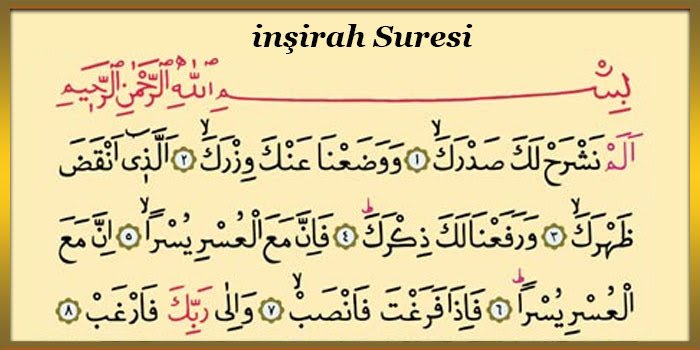 inşirah Suresi
بِسْمِ اللّٰهِ الرَّحْمٰنِ الرَّح۪يمِ
اَلَمْ نَشْرَحْ لَكَ صَدْرَكَۙ ﴿١﴾ وَوَضَعْنَا عَنْكَ وِزْرَكَۙ ﴿٢﴾ اَلَّذ۪ٓى اَنْقَضَ
ظَهْرَكَۙ ﴿٣﴾ وَرَفَعْنَا لَكَ ذِكْرَكَۜ ﴿٤﴾ فَاِنَّ مَعَ الْعُسْرِ يُسْرًاۙ ﴿٥﴾ اِنَّ مَعَ
الْعُسْرِ يُسْرًاۜ ﴿٦﴾ فَاِذَا فَرَغْتَ فَانْصَبْۙ ﴿٧﴾ وَاِلٰى رَبِّكَ فَارْغَبْ ﴿٨﴾